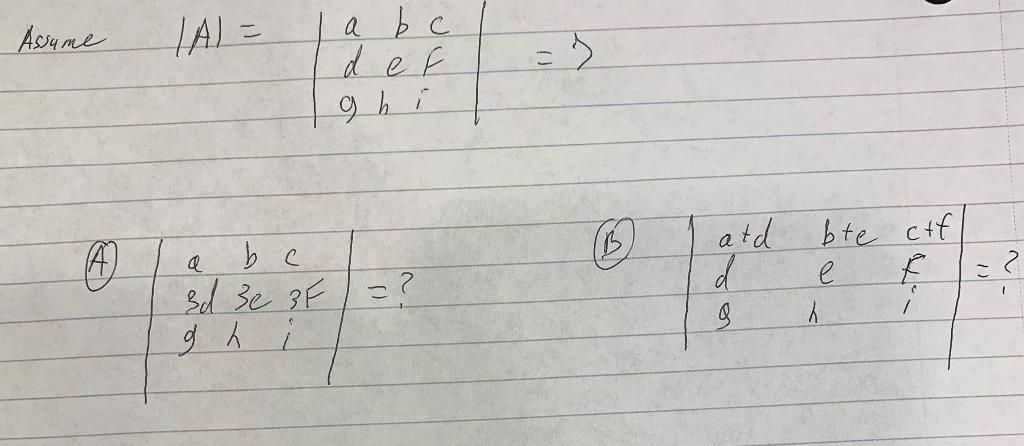 Assume |A| = | a b c |
| d e f | = 7
| g h i |
Ⓐ | a b c |
| 3d 3e 3f | = ?
| g h i |
Ⓑ | a+d b+e c+f |
| d e f | = ?
| g h i |